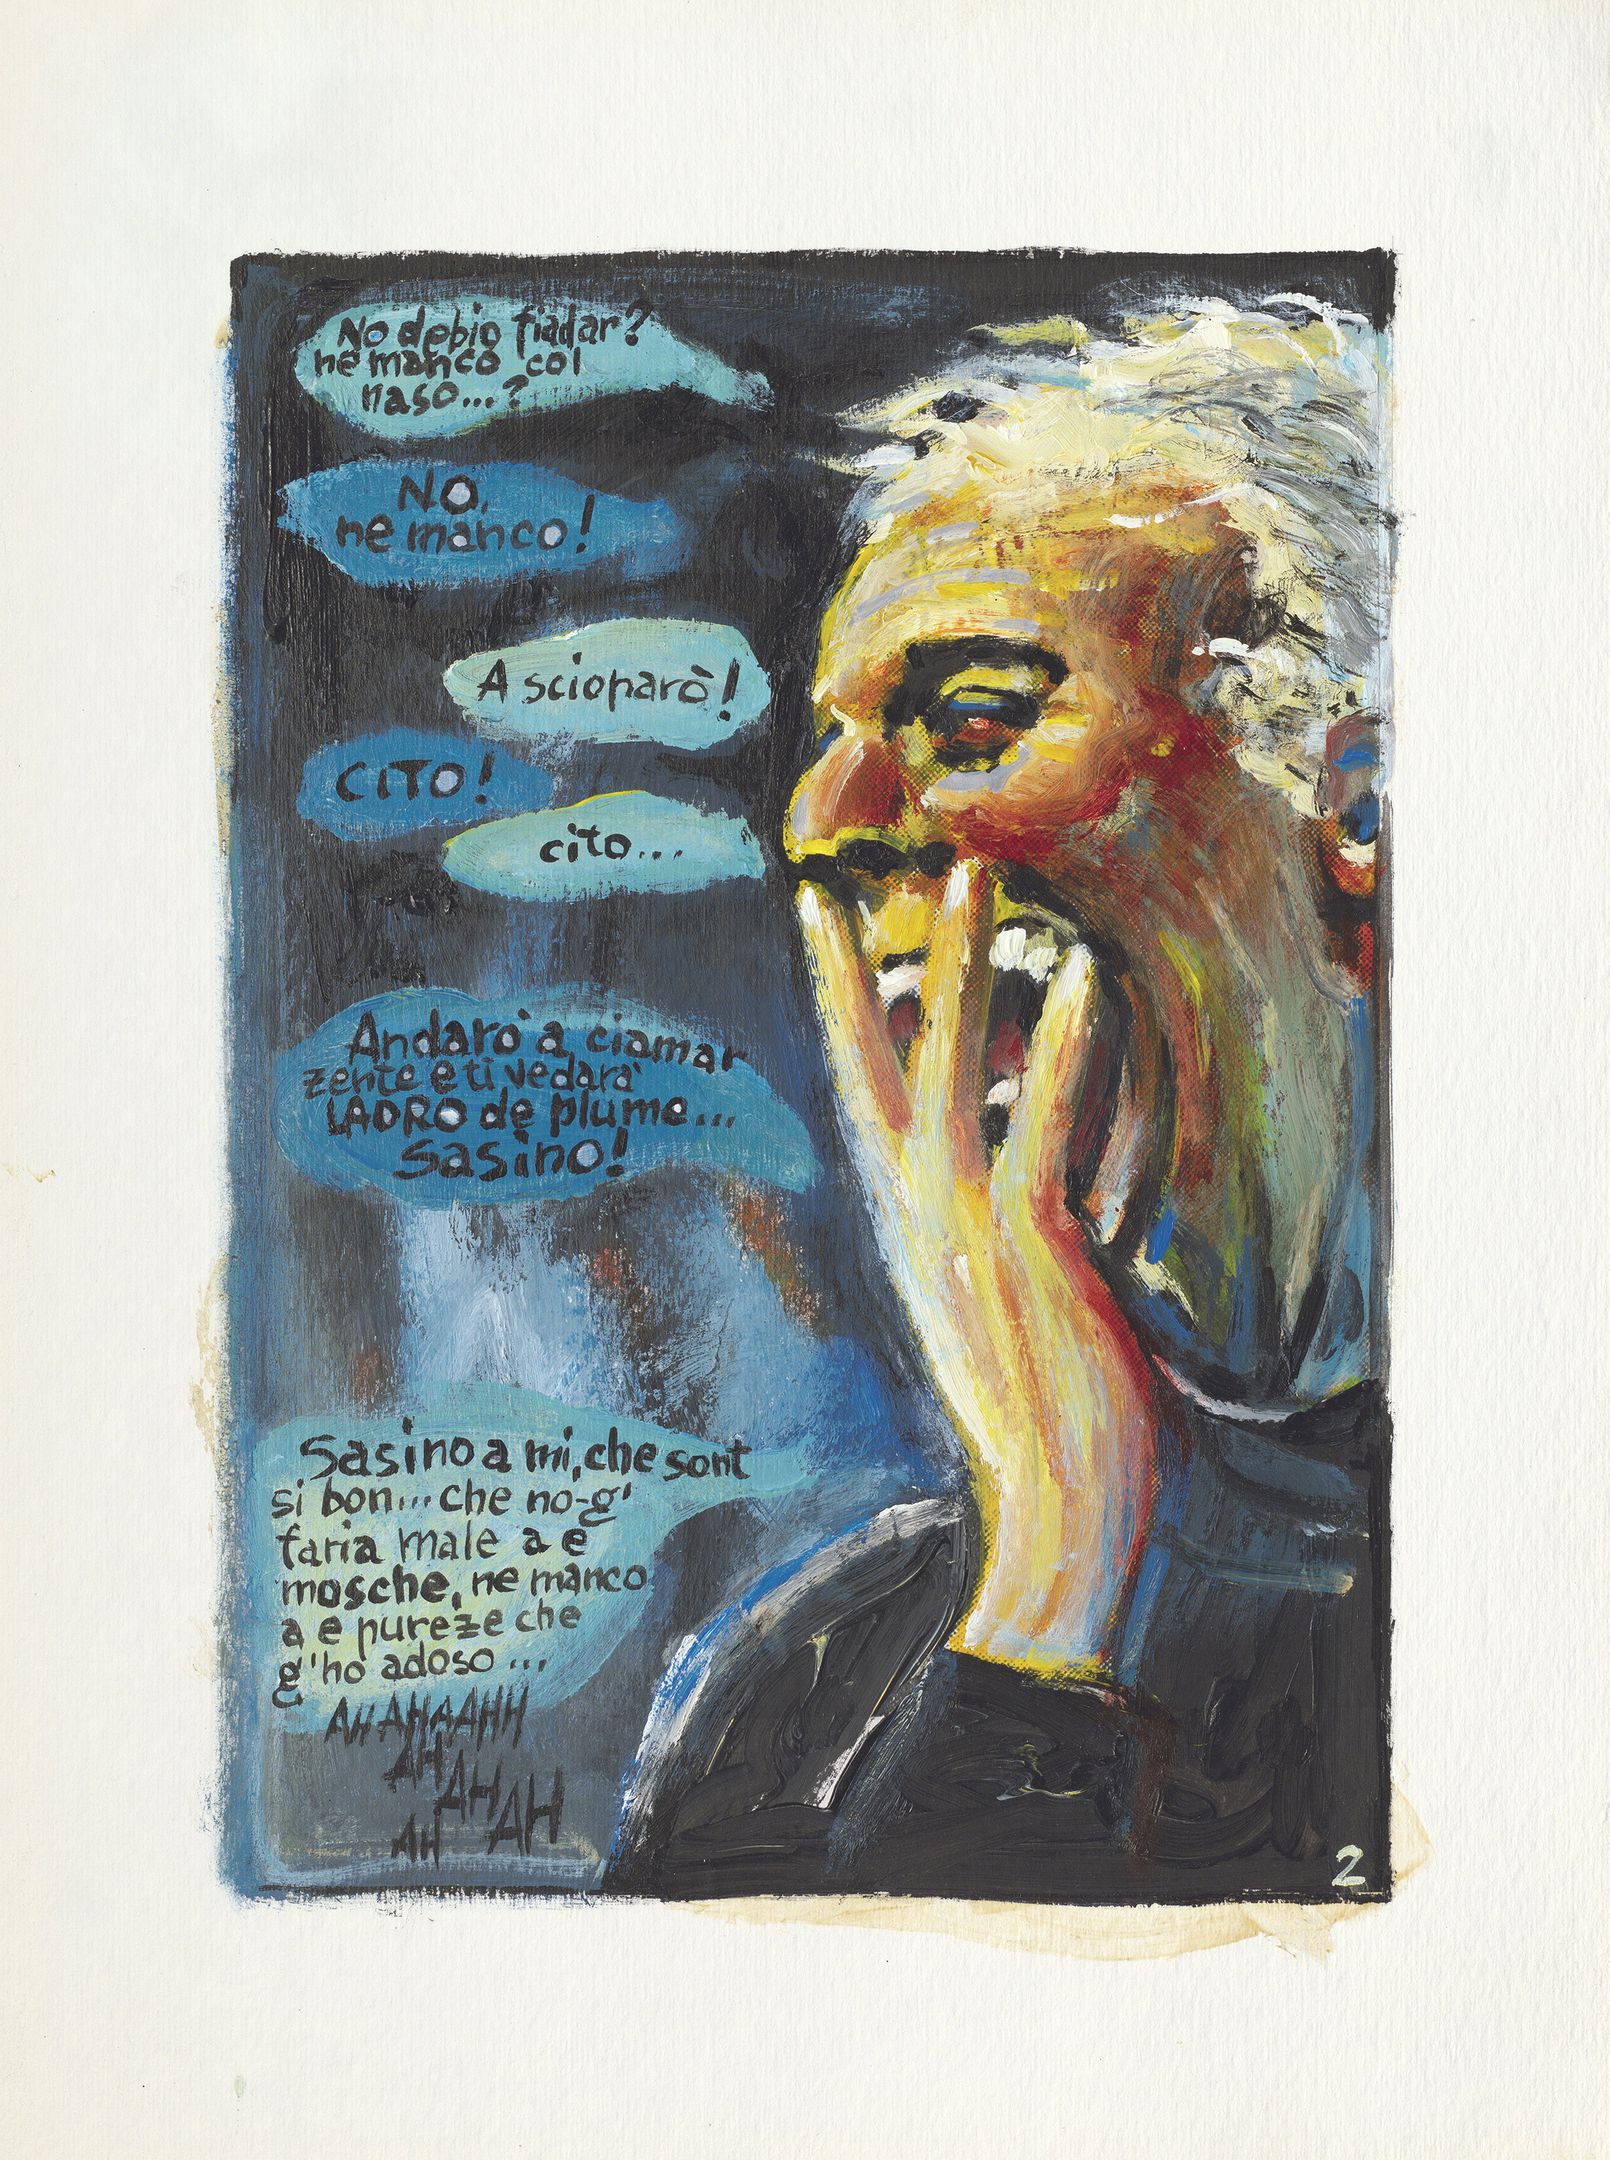 No debio fiadar?
ne manco col
naso...?
NO,
ne manco!
A scioparò!
CITO!
cito...
Andarò a ciamar
zente e ti vedarà
LADRO de plume...
Sasino!
Sasino a mi, che sont
si bon... che no-g'
faria male a e
mosche, ne manco
a e pureze che
g'ho adoso...
AH AHAAHH
AH
AH
AH
AH
2